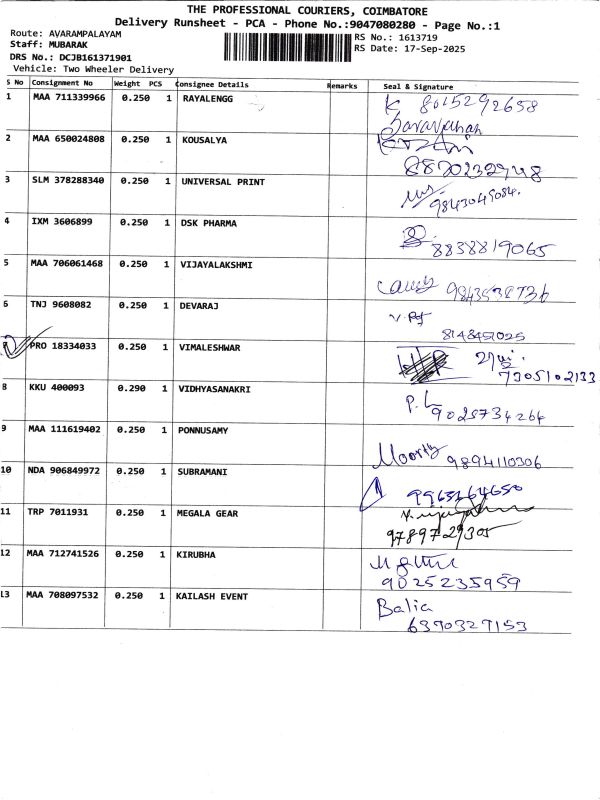 THE PROFESSIONAL COURIERS, COIMBATORE
Delivery Runsheet - PCA - Phone No.:9047080280 - Page No.:1
Route: AVARAMPALAYAM
Staff: MUBARAK
DRS No.: DCJB161371901
Vehicle: Two Wheeler Delivery
RS No.: 1613719
RS Date: 17-Sep-2025
S No Consignment No Weight PCS Consignee Details Remarks Seal & Signature
1 MAA 711339966 0.250 1 RAYALENGG K 8015292658
Saravanan
2 MAA 650024808 0.250 1 KOUSALYA
8870232948
3 SLM 378288340 0.250 1 UNIVERSAL PRINT
9843049084.
4 IXM 3606899 0.250 1 DSK PHARMA
8838819065
5 MAA 706061468 0.250 1 VIJAYALAKSHMI
6 TNJ 9608082 0.250 1 DEVARAJ
7 PRO 18334033 0.250 1 VIMALESHWAR
7305102133
8 KKU 400093 0.290 1 VIDHYASANAKRI P. L
9025734264
9 MAA 111619402 0.250 1 PONNUSAMY
Moorthy 9894110306
10 NDA 906849972 0.250 1 SUBRAMANI
11 TRP 7011931 0.250 1 MEGALA GEAR
9789729305
12 MAA 712741526 0.250 1 KIRUBHA
9025235959
13 MAA 708097532 0.250 1 KAILASH EVENT Balia
6390327153